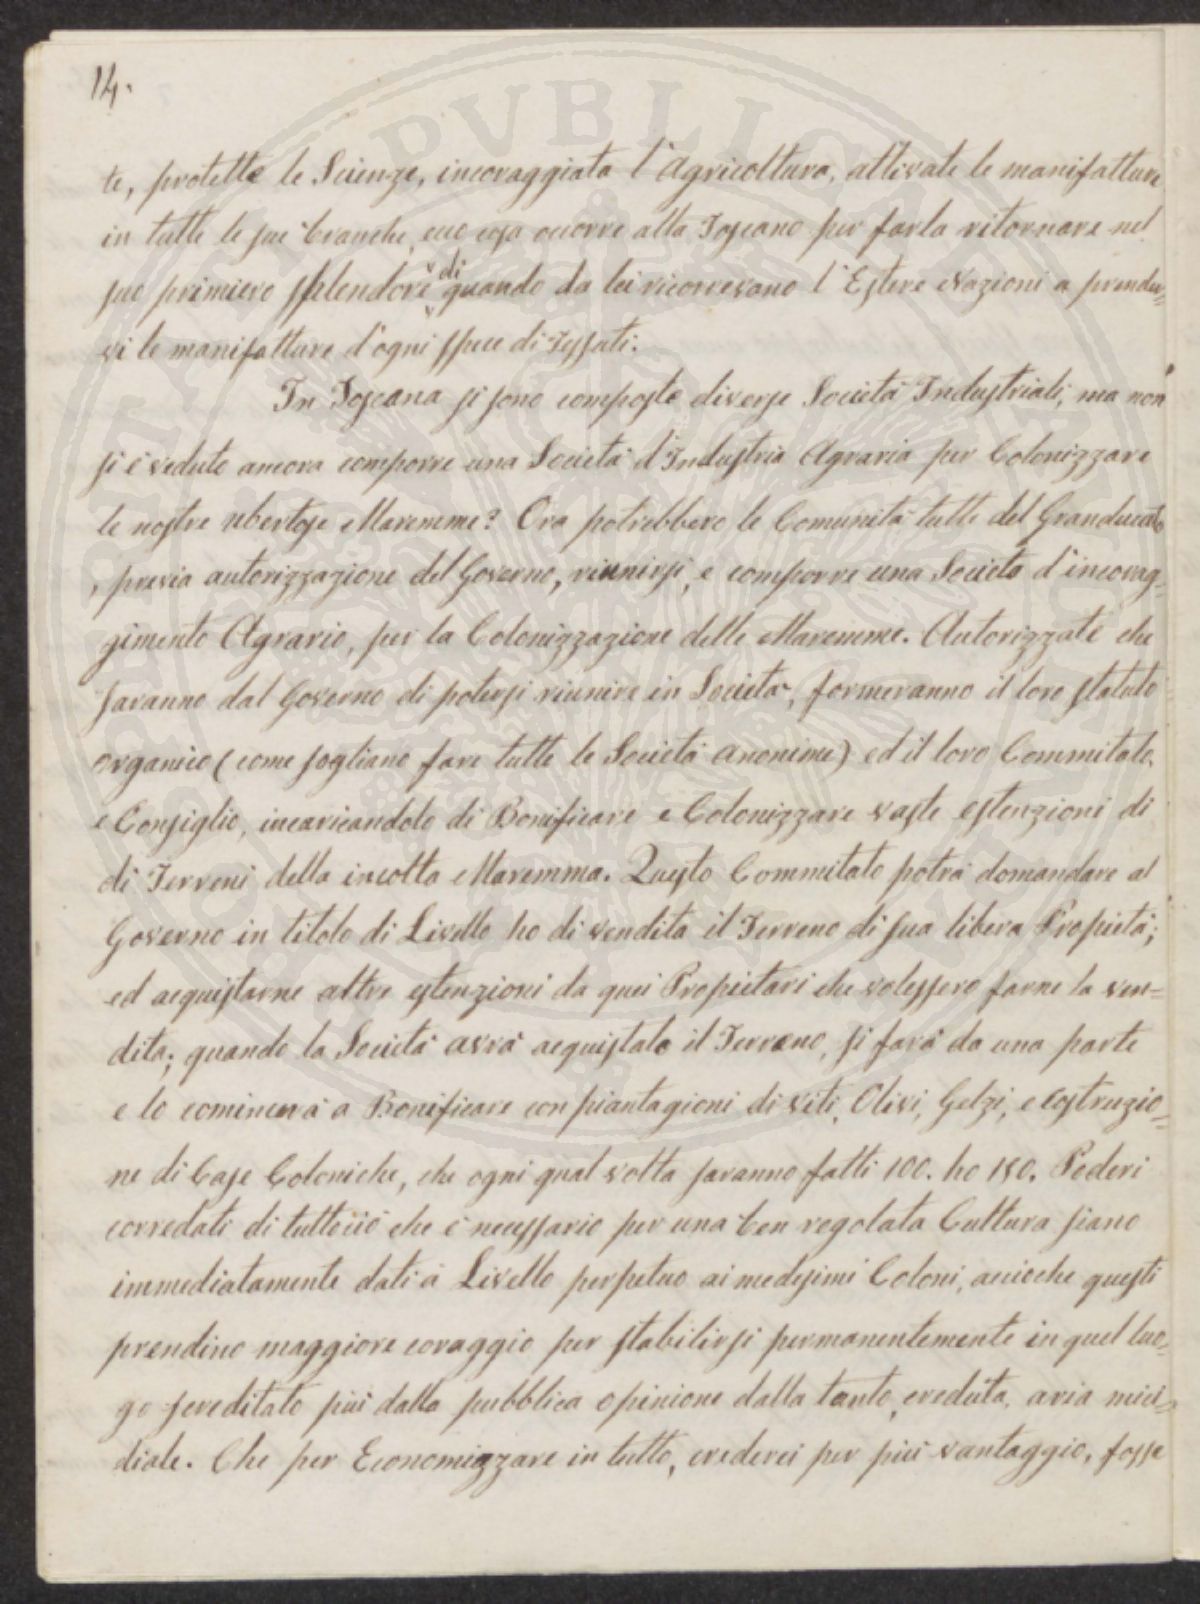 14.
te, protette le Scienze, incoraggiata l'Agricoltura, attivate le manifatture
in tutte le sue branche, ecco cosa occorre alla Toscana per farla ritornare nel
suo primiero splendore di quando da lei ricorrevano l'Estere Nazioni a prender=
vi le manifatture d'ogni spece di Tessuti.
In Toscana si sono composte diverse Società Industriali, ma non
si è veduto ancora comporre una Società d'Industria Agraria per Colonizzare
le nostre ubertose Maremme? Ora potrebbero le Comunità tutte del Granducato
, previa autorizzazione del Governo, riunirsi, e comporre una Società d'incorag=
gimento Agrario, per la Colonizzazione delle Maremme. Autorizzate che
saranno dal Governo di potersi riunire in Società, formeranno il loro statuto
organico (come sogliano fare tutte le Società anonime) ed il loro Commitato,
e Consiglio, incaricandolo di Bonificare e Colonizzare vaste estenzioni di
di Terreni della incolta Maremma. Questo Commitato potrà domandare al
Governo in titolo di Livello ho di vendita il Terreno di sua libera Propietà;
ed acquistarne altre estenzioni da quei Propietari che volessero farne la ven=
dita; quando la Società avrà acquistato il Terreno, si farà da una parte
e lo comincerà a Bonificare con piantagioni di viti, Olivi, Gelzi, e costruzio=
ne di Case Coloniche, che ogni qual volta saranno fatti 100. ho 150. Poderi
corredati di tuttociò che è necessario per una ben regolata Cultura siano
immediatamente dati à Livello perpetuo ai medesimi Coloni, acciochè questi
prendino maggiore coraggio per stabilirsi permanentemente in quel luo=
go screditato più dalla pubblica opinione dalla tanto, creduta, aria mici=
diale. Che per Economizzare in tutto, crederei per più vantaggio, fosse